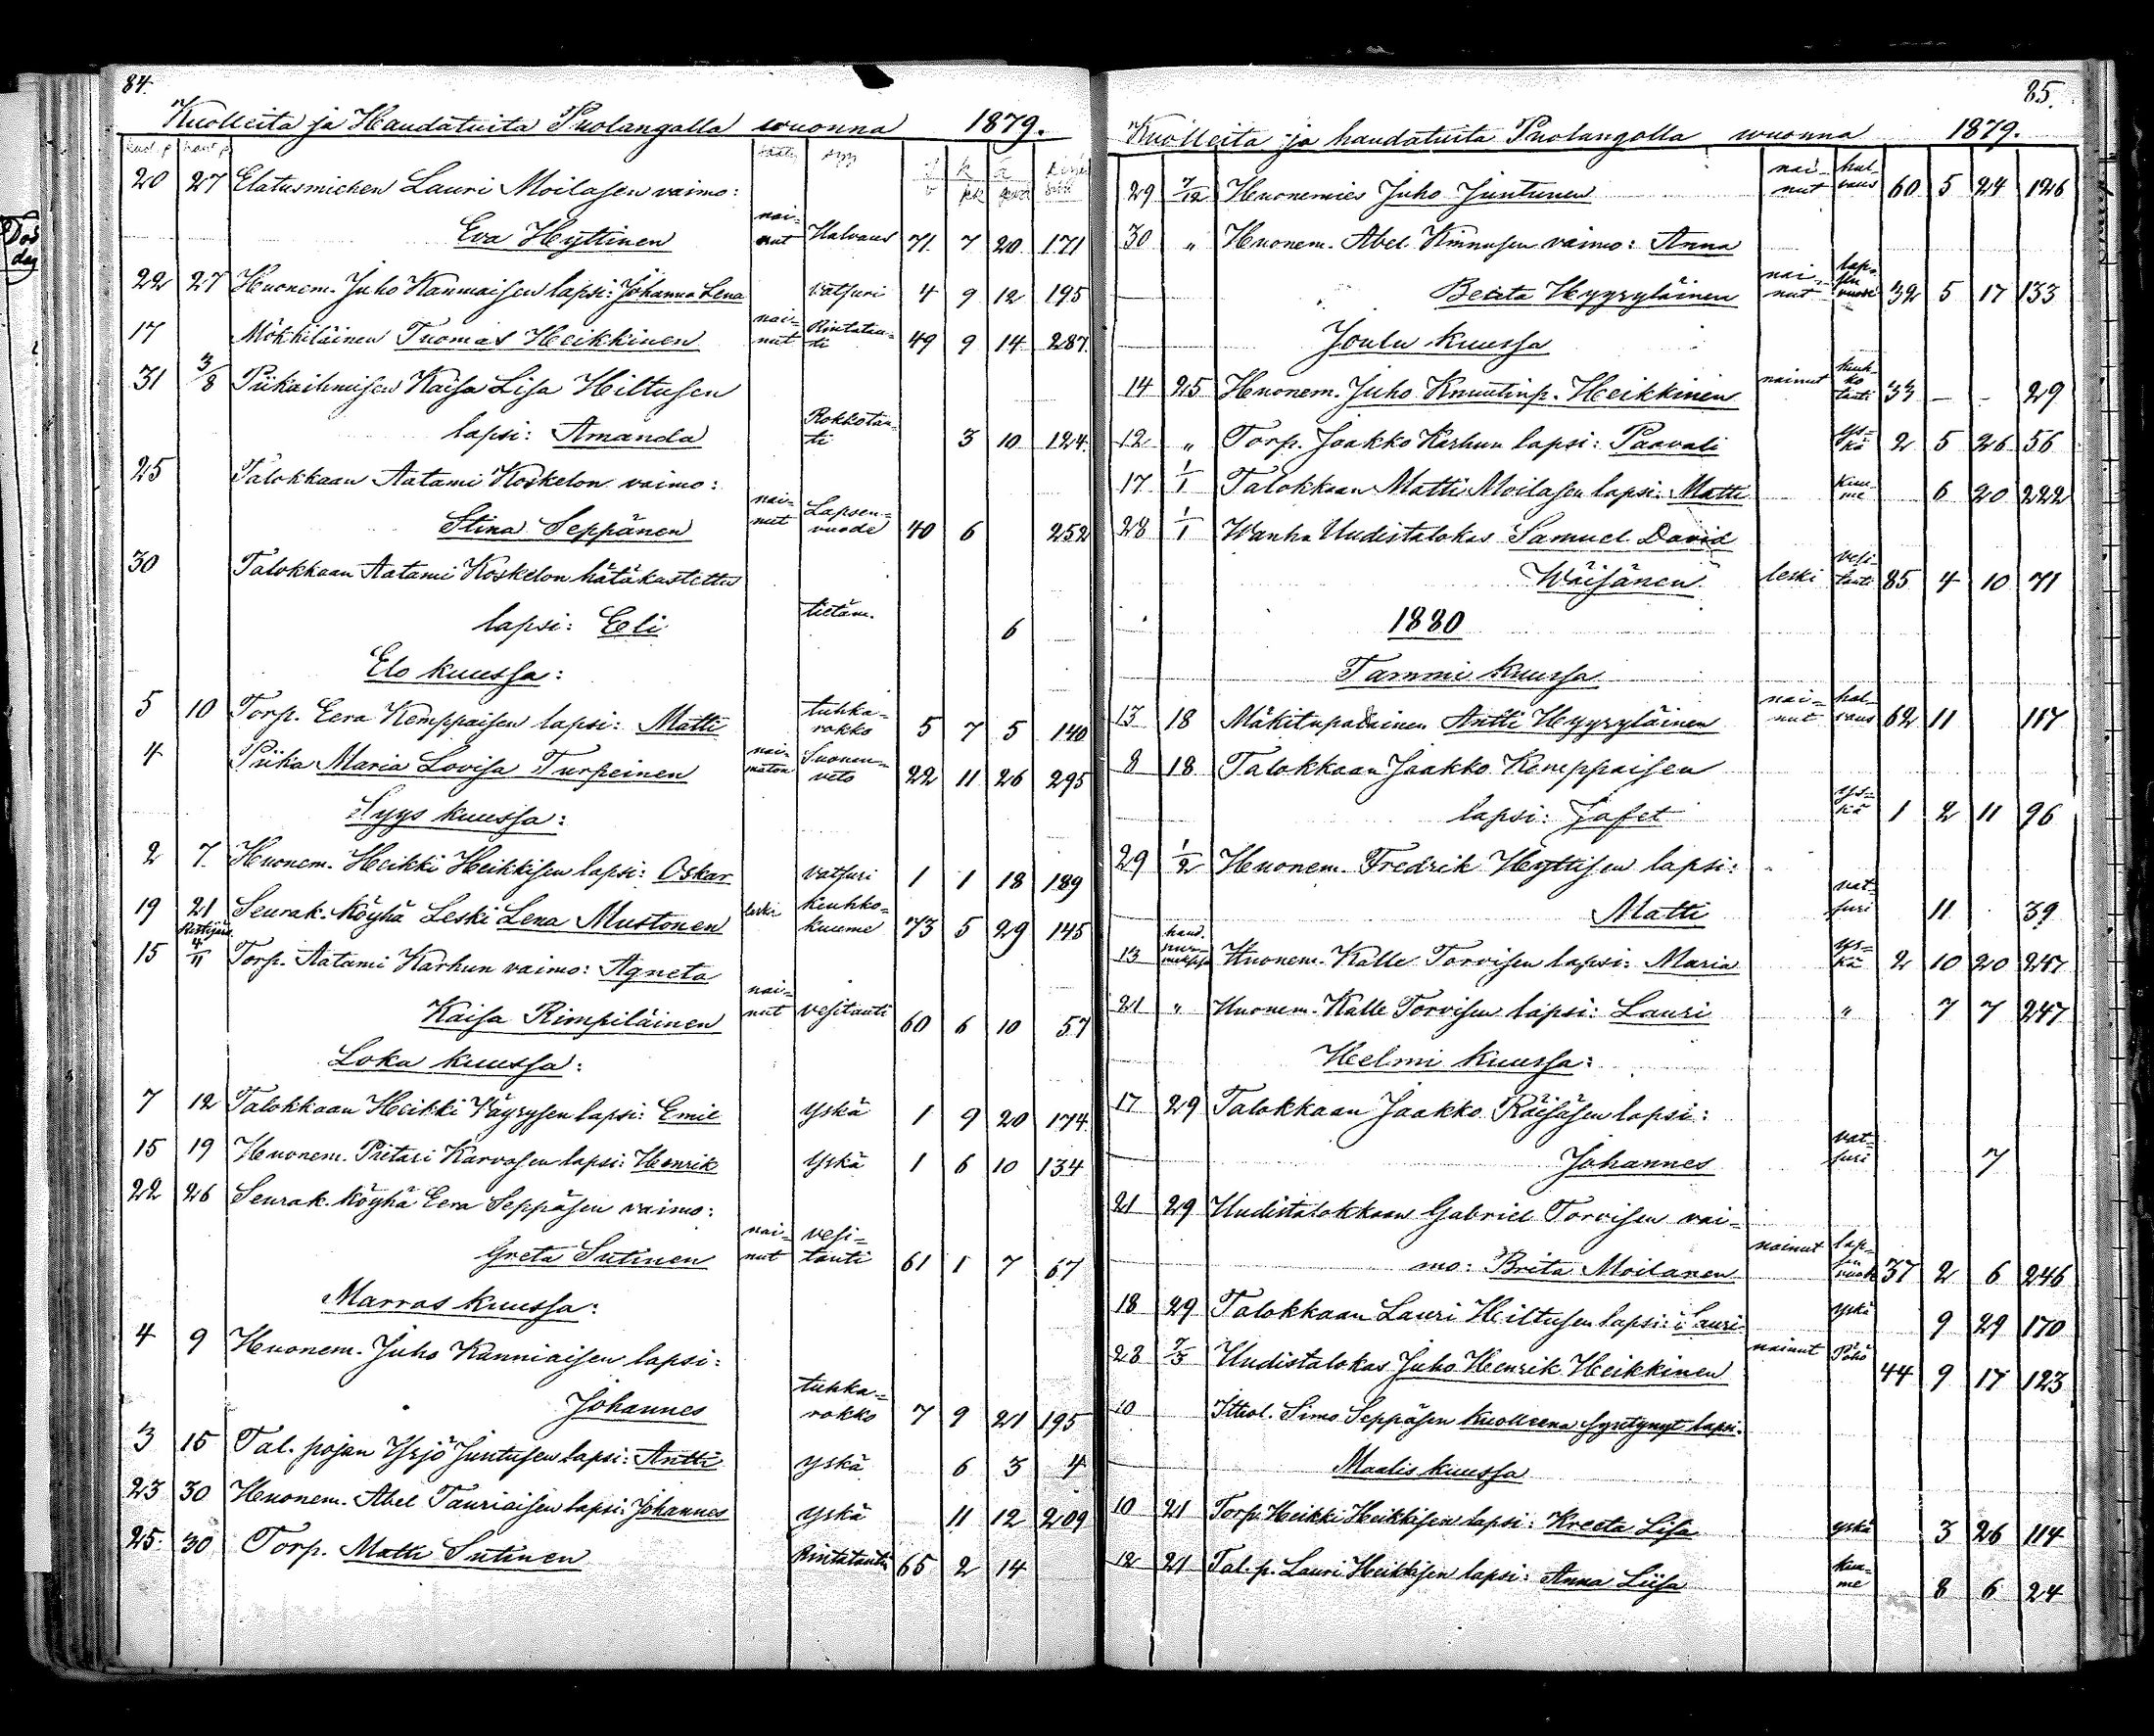 84.
Kuolleita ja Haudatuita Puolangalla wuonna 1879.
20 27 Elatusmiehen Lauri Moilasen vaimo:
Eva Hyttinen nainut Halvaus 71 7 20 171
22 27 Huonem. Juho Kanniaisen lapsi: Johanna Lena vatsuri 4 9 12 195
17 Mökkiläinen Tuomas Heikkinen nainut Rintatauti 49 9 14 287.
31 3/8 Piikaihmisen Kaisa Lisa Hiltusen
lapsi: Amanda Rokkotauti 3 10 124.
25 Talokkaan Aatami Koskelon vaimo:
Stina Seppänen nainut Lapsenvuode 40 6 252
30 Talokkaan Aatami Koskelon hätäkastettu
lapsi: Eeli tietäm. 6
Elo kuussa:
5 10 Torp. Eera Kemppaisen lapsi: Matti tuhkarokko 5 7 5 140
4 Piika Maria Lovisa Turpeinen naimaton Suonenveto 22 11 26 295
Syys kuussa:
2 7. Huonem. Heikki Heikkisen lapsi: Oskar vatsuri 1 1 18 189
19 21 Seurak. Köyhä Leski Lena Mustonen leski keuhkokuume 73 5 29 145
15 4/11 Torp. Aatami Karhun vaimo: Agneta
Kaisa Rimpiläinen nainut vesitauti 60 6 10 57
Loka kuussa:
7 12 Talokkaan Heikki Väyrysen lapsi: Emil Yskä 1 9 20 174
15 19 Huonem. Pietari Karvosen lapsi: Henrik Yskä 1 6 10 134
22 26 Seurak. köyhä Eera Seppäsen vaimo:
Greta Sutinen nainut vesitauti 61 1 7 67
Marras kuussa:
4 9 Huonem. Juho Kanniaisen lapsi:
Johannes tuhkarokko 7 9 21 195
3 15 Tal. pojan Yrjö Juntusen lapsi: Antti yskä 6 3 4
23 30 Huonem. Abel Tauriaisen lapsi: Johannes yskä 11 12 209
25. 30 Torp. Matti Sutinen Rintatauti 65 2 14
85.
Kuolleita ja haudatuita Puolangolla wuonna 1879.
29 7/12 Huonemies Juho Juntunen nainut halvaus 60 5 24 126
30 " Huonem. Abel Kinnusen vaimo: Anna
Beata Heyryläinen nainut lapsenvuode 32 5 17 133
Joulu kuussa
14 25 Huonem. Juho Knuutinp. Heikkinen nainut keuhkotauti 33 - - 29
12 " Torp. Jaakko Karhun lapsi: Paavali yskä 2 5 26 56
17 1/1 Talokkaan Matti Moilasen lapsi: Matti kuume 6 20 222
28 1/1 Wanha Uudistalokas Samuel David
Wäisänen leski vesitauti 85 4 10 71
1880
Tammi kuussa
13 18 Mäkitupalainen Antti Heyryläinen nainut halvaus 62 11 117
8 18 Talokkaan Jaakko Kemppaisen
lapsi: Jafet yskä 1 2 11 96
29 1/2 Huonem. Fredrik Hyttisen lapsi:
Matti vatsuri 11 39
13 Huonem. Kalle Torvisen lapsi: Maria yskä 2 10 20 247
21 " Huonem. Kalle Torvisen lapsi: Lauri " 7 7 247
Helmi kuussa:
17 29 Talokkaan Jaakko Räisäsen lapsi:
Johannes vatsuri 7
21 29 Uudistalokkaan Gabriel Torvisen vai=
mo: Brita Moilanen nainut 37 2 6 246
18 29 Talokkaan Lauri Hiltusen lapsi: Lauri yskä 9 29 170
28 7/3 Uudistalokas Juho Henrik Heikkinen nainut Pöhö 44 9 17 123
10 Ittol. Simo Seppäsen kuolleena syntynyt lapsi.
Maalis kuussa
10 21 Torp. Heikki Heikkisen lapsi: Kreeta Lisa yskä 3 26 114
12 21 Tal. p. Lauri Heikkisen lapsi: Anna Liisa kuume 8 6 24